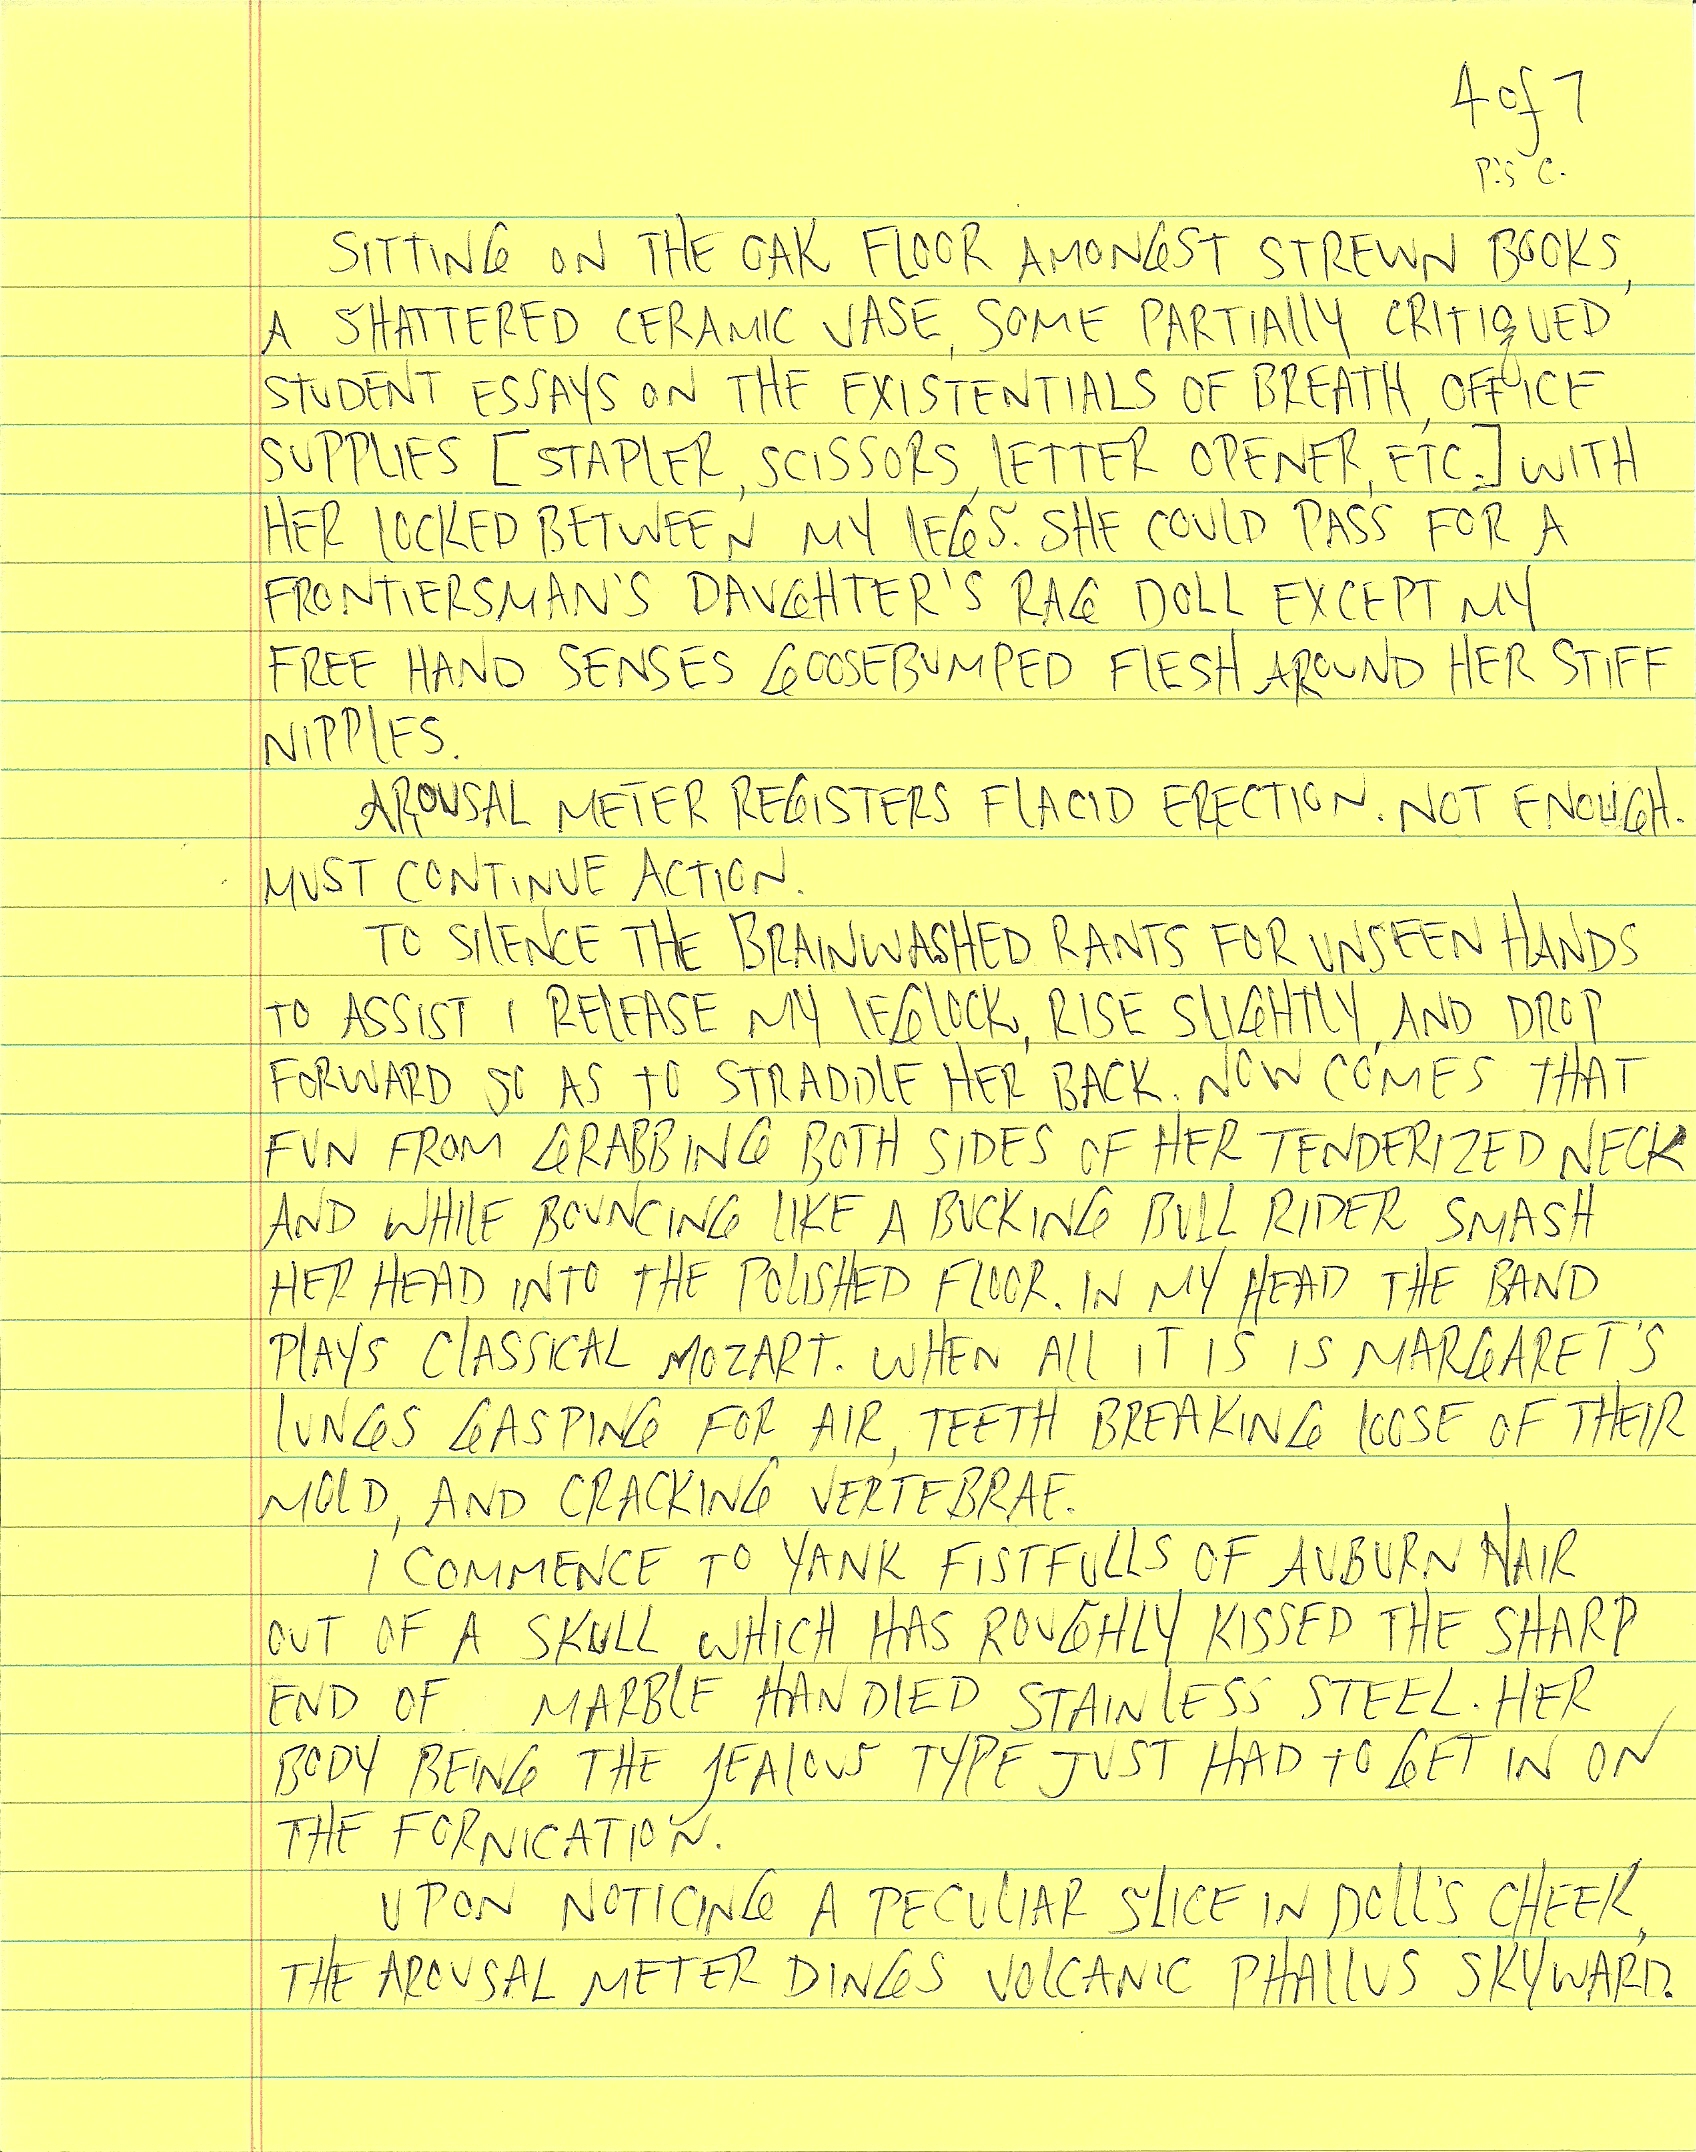 4 of 7
P.'S C.
SITTING ON THE OAK FLOOR AMONGST STREWN BOOKS,
A SHATTERED CERAMIC VASE, SOME PARTIALLY CRITIQUED
STUDENT ESSAYS ON THE EXISTENTIALS OF BREATH, OFFICE
SUPPLIES [STAPLER, SCISSORS, LETTER OPENER, ETC.] WITH
HER LOCKED BETWEEN MY LEGS. SHE COULD PASS FOR A
FRONTIERSMAN'S DAUGHTER'S RAG DOLL EXCEPT MY
FREE HAND SENSES GOOSEBUMPED FLESH AROUND HER STIFF
NIPPLES.
AROUSAL METER REGISTERS FLACID ERECTION. NOT ENOUGH.
MUST CONTINUE ACTION.
TO SILENCE THE BRAINWASHED RANTS FOR UNSEEN HANDS
TO ASSIST I RELEASE MY LEGLOCK, RISE SLIGHTLY, AND DROP
FORWARD SO AS TO STRADDLE HER BACK. NOW COMES THAT
FUN FROM GRABBING BOTH SIDES OF HER TENDERIZED NECK
AND WHILE BOUNCING LIKE A BUCKING BULL RIDER SMASH
HER HEAD INTO THE POLISHED FLOOR. IN MY HEAD THE BAND
PLAYS CLASSICAL MOZART. WHEN ALL IT IS IS MARGARET'S
LUNGS GASPING FOR AIR, TEETH BREAKING LOOSE OF THEIR
MOLD, AND CRACKING VERTEBRAE.
I COMMENCE TO YANK FISTFULLS OF AUBURN HAIR
OUT OF A SKULL WHICH HAS ROUGHLY KISSED THE SHARP
END OF MARBLE HANDLED STAINLESS STEEL. HER
BODY BEING THE JEALOUS TYPE JUST HAD TO GET IN ON
THE FORNICATION.
UPON NOTICING A PECULIAR SLICE IN DOLL'S CHEEK,
THE AROUSAL METER DINGS VOLCANIC PHALLUS SKYWARD.